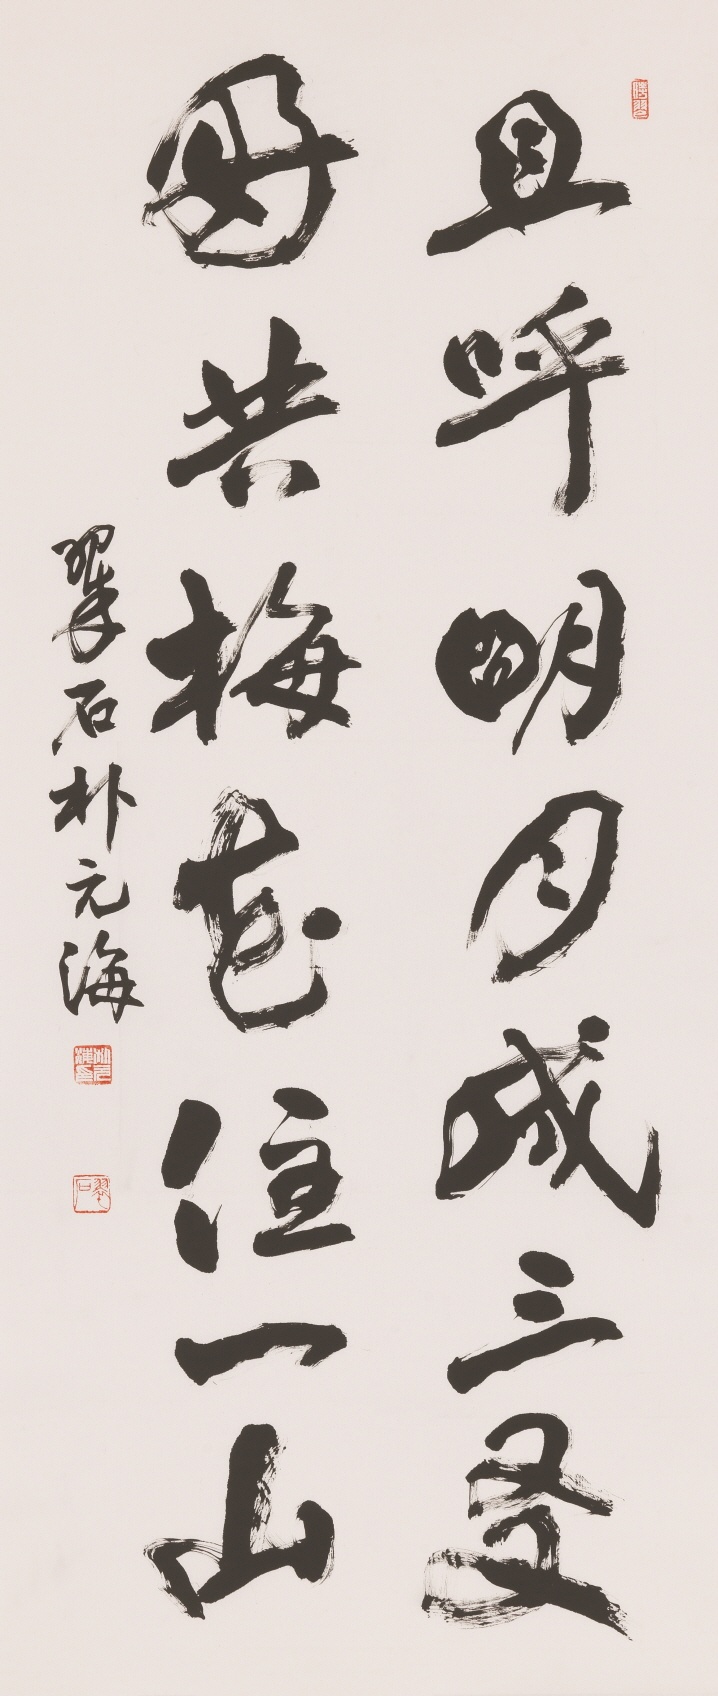 且呼明月成三友
好共梅花住一山
翠石朴元海